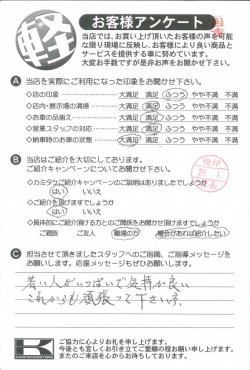 軽
お客様アンケート
当店では、お買い上げ頂いたお客様の声を可能
な限り現場に反映し、お客様により良い商品と
サービスを提供する事に努めています。
大変お手数ですが是非お声をお聞かせ下さい。
A 当店を実際にご利用になった印象をお聞かせ下さい。
◇店の印象 大満足 満足 ふつう やや不満 不満
◇店内・展示場の清掃 大満足 満足 ふつう やや不満 不満
◇お車の品揃え 大満足 満足 ふつう やや不満 不満
◇営業スタッフの対応 大満足 満足 ふつう やや不満 不満
◇納車時のお車の状態 大満足 満足 ふつう やや不満 不満
B 当店はご紹介を大切にしてあります。
ご紹介キャンペーンについてお聞かせ下さい。
◇カミタケご紹介キャンペーンのご説明はありましたでしょうか
はい いいえ
◇ご紹介を頂けますでしょうか
はい いいえ
◇具体的にご紹介頂ける方とのご関係をお聞かせ頂けますでしょうか
ご親類 ご友人 職場の方 機会があれば紹介したい
C 担当させて頂きましたスタッフへのご指摘、ご指導メッセージを
お願いします。応援メッセージもぜひお願いします。
若い人がいっぱいで気持が良い
これからも頑張って下さいネ。
K
ご協力に心よりお礼を申し上げます。
今後とも宜しくお引き立てご愛顧の程お願い申し上げます。
またのご来店を心からお待ちしております。